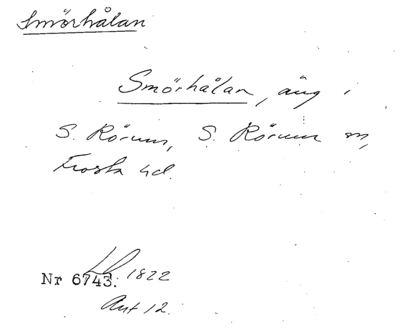 Smörhålan
Smörhålan, äng i
S. Rörum, S. Rörum sn,
Frosta hd.
Nr 6743. 1822
Akt 12.